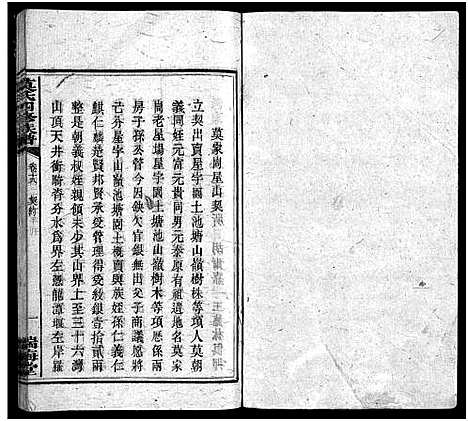 莫象崗屋山契
立契出賣屋宇園土池山嶺樹株等項人莫朝
義同姪元富元貴同男元泰原有祖遺地名莫家
崗老屋場屋宇園土塘池山嶺樹木等項歷係兩
房子孫公管今因缺欠官銀無出父子商議愿將
己分屋宇山嶺池塘園土概賣與族姪孫仁義仁
麒仁麟患賢邦賢承受管理得受紋銀壹拾貳兩
整是朝義叔姪親領未少其山界上至三十六灣
山頂天井衝騎脊分水爲界左至龍潭堰左岸羅
莫氏四修族譜
卷十六 契約